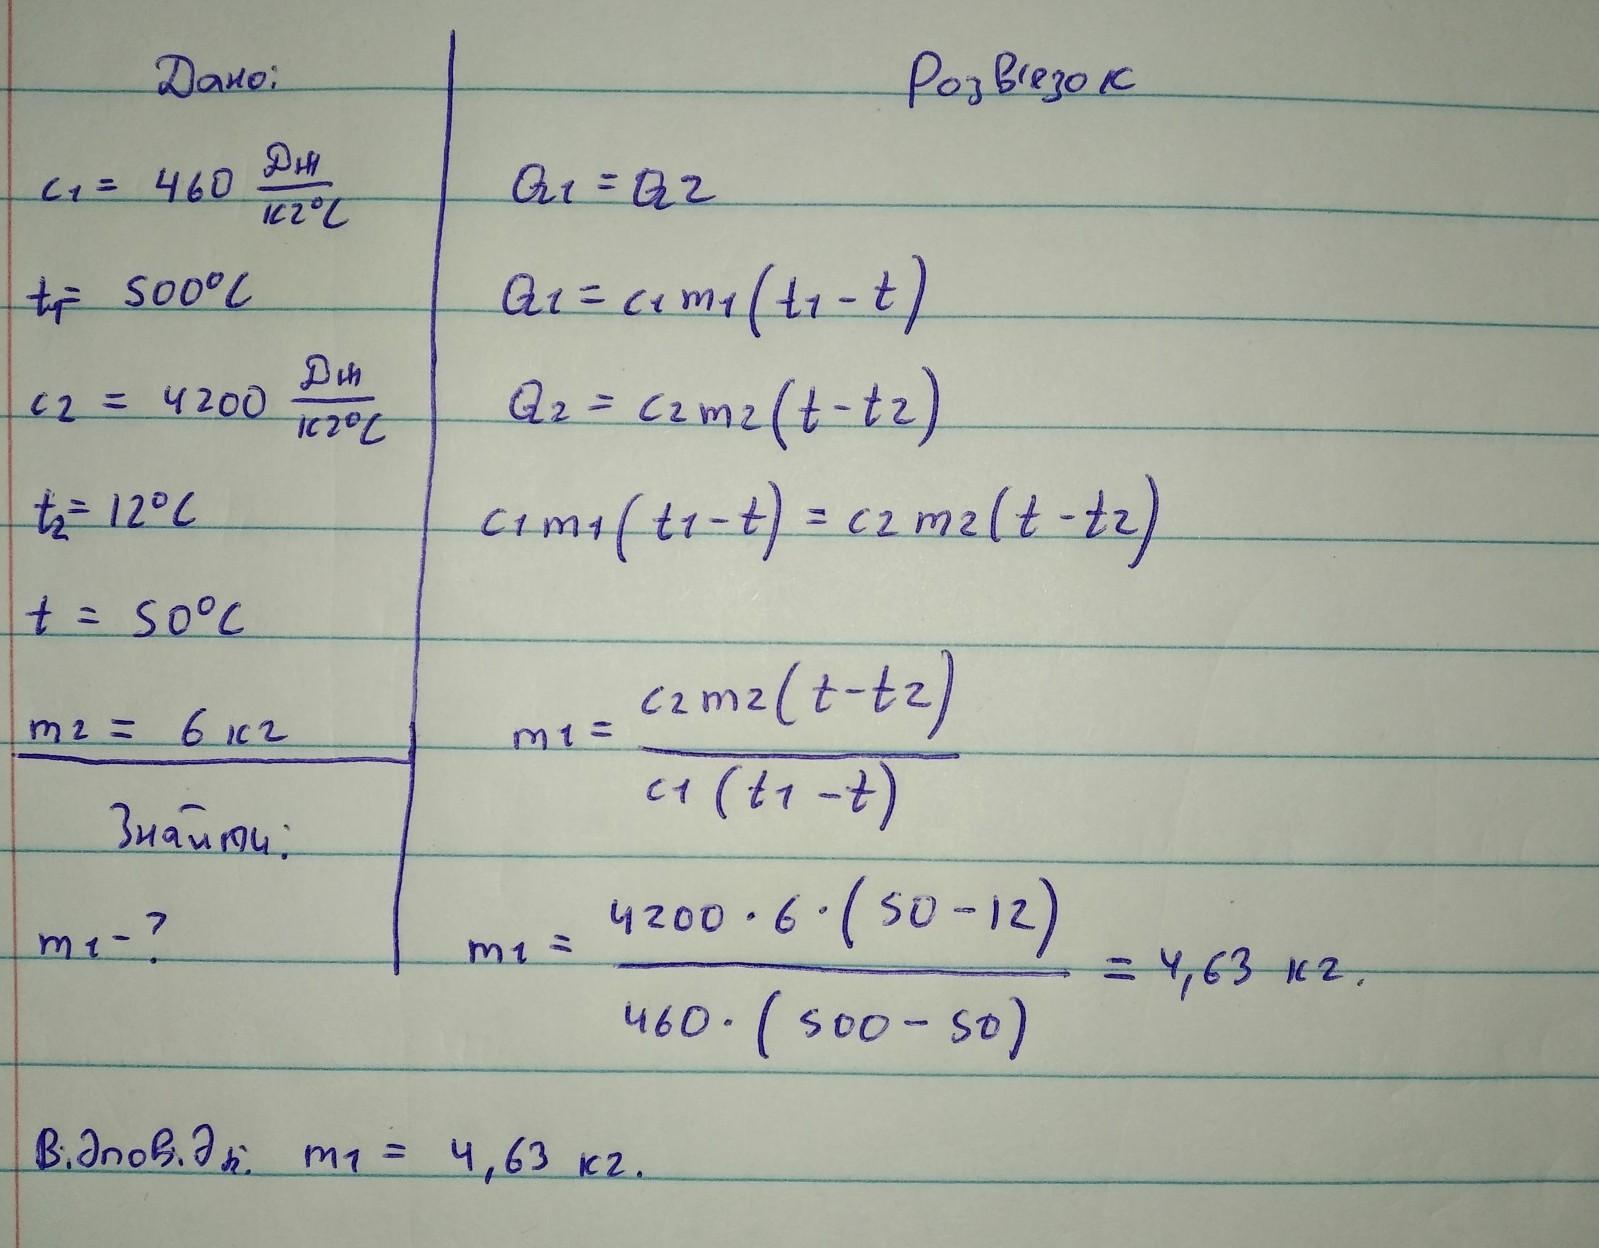 Дано:
c1 = 460 Дж/кг°C
t1 = 500°C
c2 = 4200 Дж/кг°C
t2 = 12°C
t = 50°C
m2 = 6 кг
Знайти:
m1 - ?
Розв'язок
Q1 = Q2
Q1 = c1m1(t1 - t)
Q2 = c2m2(t - t2)
c1m1(t1 - t) = c2m2(t - t2)
m1 = c2m2(t - t2) / c1(t1 - t)
m1 = 4200 · 6 · (50 - 12) / 460 · (500 - 50) = 4,63 кг.
Відповідь: m1 = 4,63 кг.